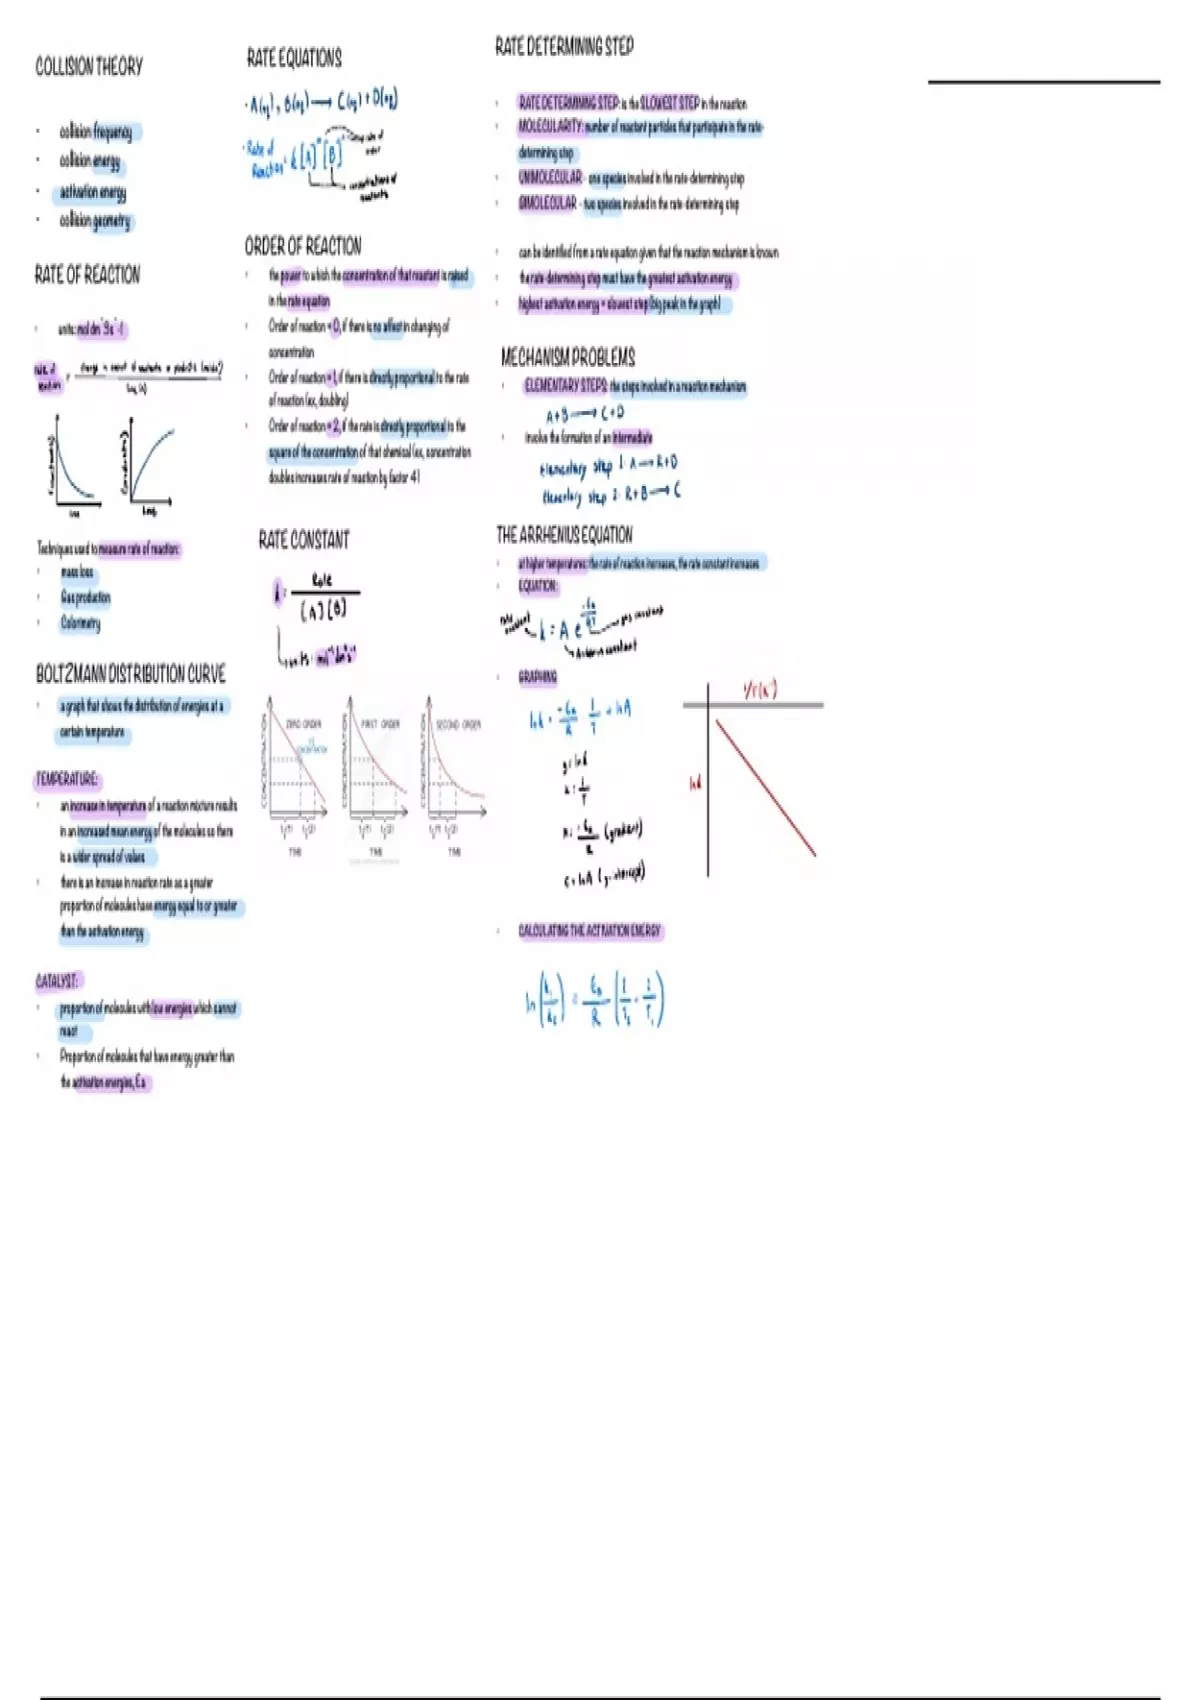 COLLISION THEORY
collision frequency
collision energy
activation energy
collision geometry
RATE OF REACTION
units: mol dm^-3 s^-1
rate of reaction = change in amount of reactants or products (moles?)
time (s)
time
time
Techniques used to measure rate of reaction:
mass loss
Gas production
Colorimetry
BOLTZMANN DISTRIBUTION CURVE
a graph that shows the distribution of energies at a
certain temperature
TEMPERATURE:
an increase in temperature of a reaction mixture results
in an increased mean energy of the molecules so there
is a wider spread of values
there is an increase in reaction rate as a greater
proportion of molecules have energy equal to or greater
than the activation energy
CATALYST:
proportion of molecules with low energies which cannot
react
Proportion of molecules that have energy greater than
the activation energies, Ea
RATE EQUATIONS
A(aq) + B(aq) → C(aq) + D(aq)
Rate of Reaction = k [A]^m [B]^n
order
concentrations of
reactants
ORDER OF REACTION
the power to which the concentration of that reactant is raised
in the rate equation
Order of reaction = 0, if there is no affect in changing of
concentration
Order of reaction = 1, if there is directly proportional to the rate
of reaction (ex, doubling)
Order of reaction = 2, if the rate is directly proportional to the
square of the concentration of that chemical (ex, concentration
doubles increases rate of reaction by factor 4)
RATE CONSTANT
k = Rate
[A][B]
units: mol^-1 dm^3 s^-1
CONCENTRATION
ZERO ORDER
CONCENTRATION
t½(1) t½(2)
TIME
CONCENTRATION
FIRST ORDER
t½(1) t½(2)
TIME
CONCENTRATION
SECOND ORDER
t½(1) t½(2)
TIME
RATE DETERMINING STEP
RATE DETERMINING STEP: is the SLOWEST STEP in the reaction
MOLECULARITY: number of reactant particles that participate in the rate-
determining step
UNIMOLECULAR - one species involved in the rate-determining step
BIMOLECULAR - two species involved in the rate-determining step
can be identified from a rate equation given that the reaction mechanism is known
the rate-determining step must have the greatest activation energy
highest activation energy = slowest step (big peak in the graph)
MECHANISM PROBLEMS
ELEMENTARY STEPS: the steps involved in a reaction mechanism
A + B → C + D
Involve the formation of an intermediate
Elementary step 1: A → R + D
Elementary step 2: R + B → C
THE ARRHENIUS EQUATION
at higher temperatures: the rate of reaction increases, the rate constant increases
EQUATION:
rate constant
k = A e^(-Ea/RT)
gas constant
Arrhenius constant
GRAPHING
ln k = -Ea/R 1/T + ln A
y = ln k
x = 1/T
m = -Ea/R (gradient)
c = ln A (y-intercept)
1/T (K^-1)
ln k
CALCULATING THE ACTIVATION ENERGY
ln (k1/k2) = Ea/R (1/T2 - 1/T1)